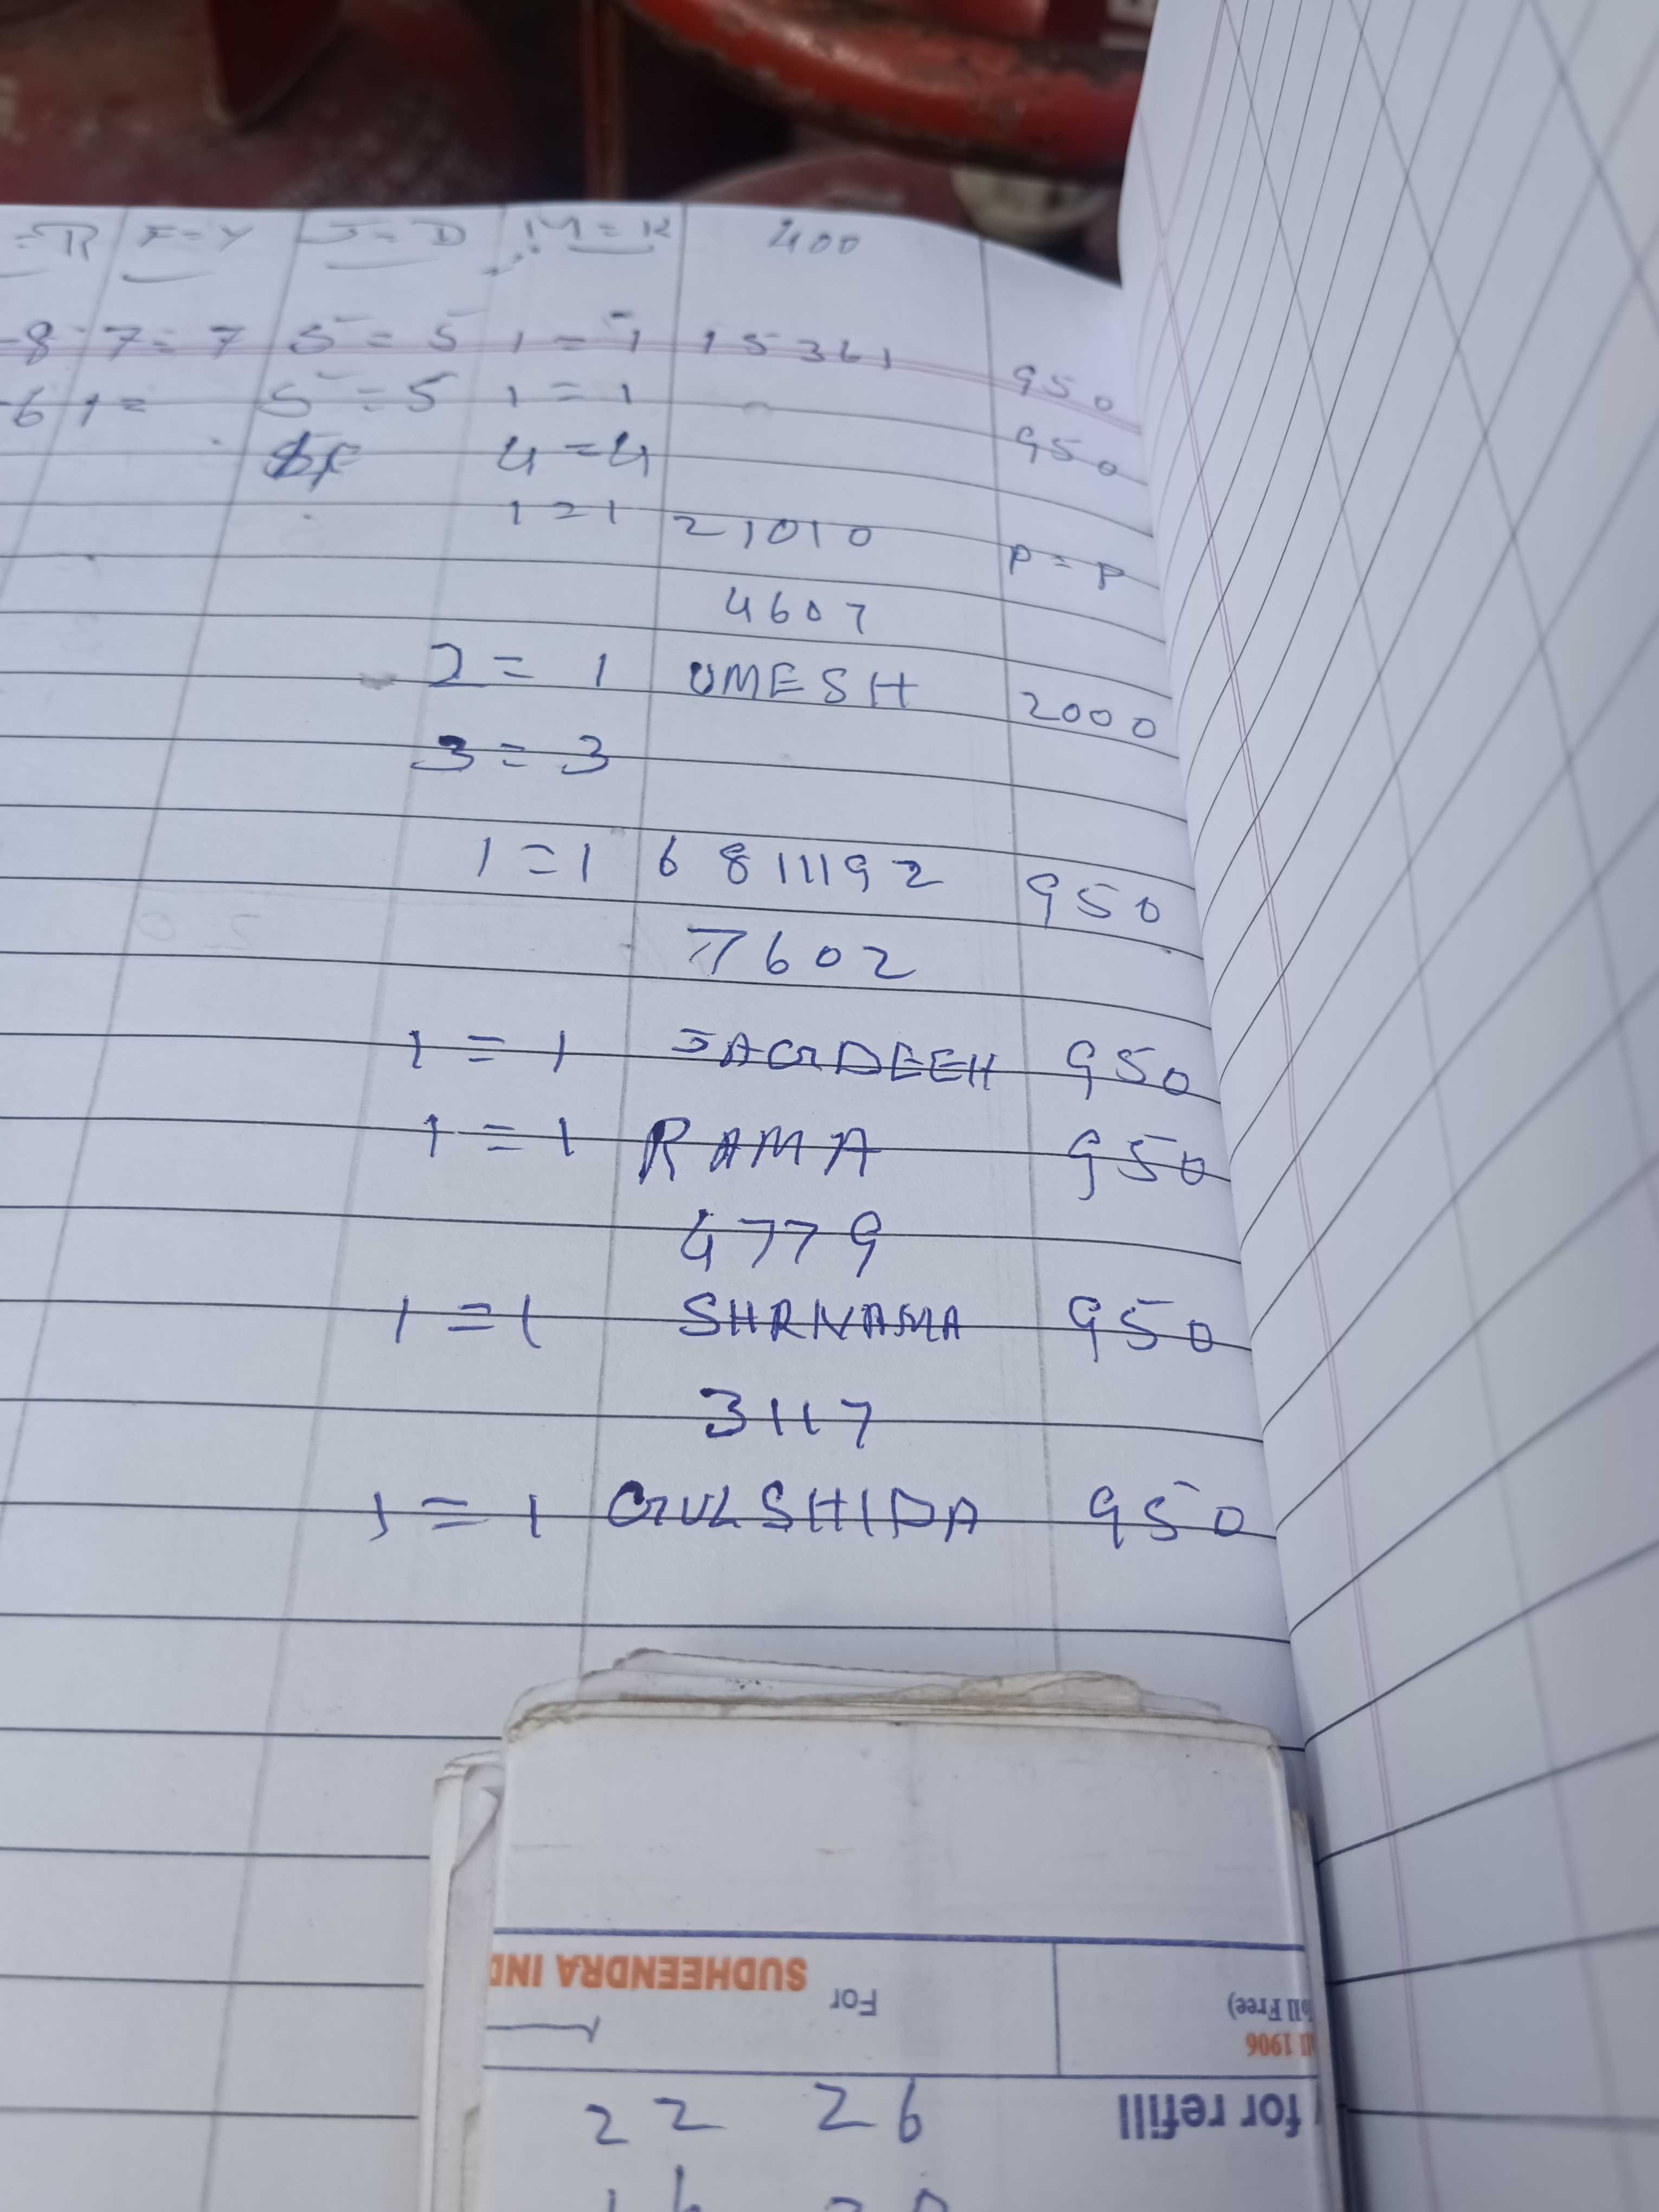 =R F=Y J=D M=K 400
-8 7=7 5=5 1=1 15361 950
-6 1= 5=5 1=1 950
4=4
1=1 21010 P=P
4607
2=1 UMESH 2000
3=3
1=1 6811192 950
7602
1=1 JAGDEEH 950
1=1 RAMA 950
4779
1=1 950
3117
1=1 GULSHIDA 950
22 26
for refill
1906
Toll Free)
For
SUDHEENDRA IND